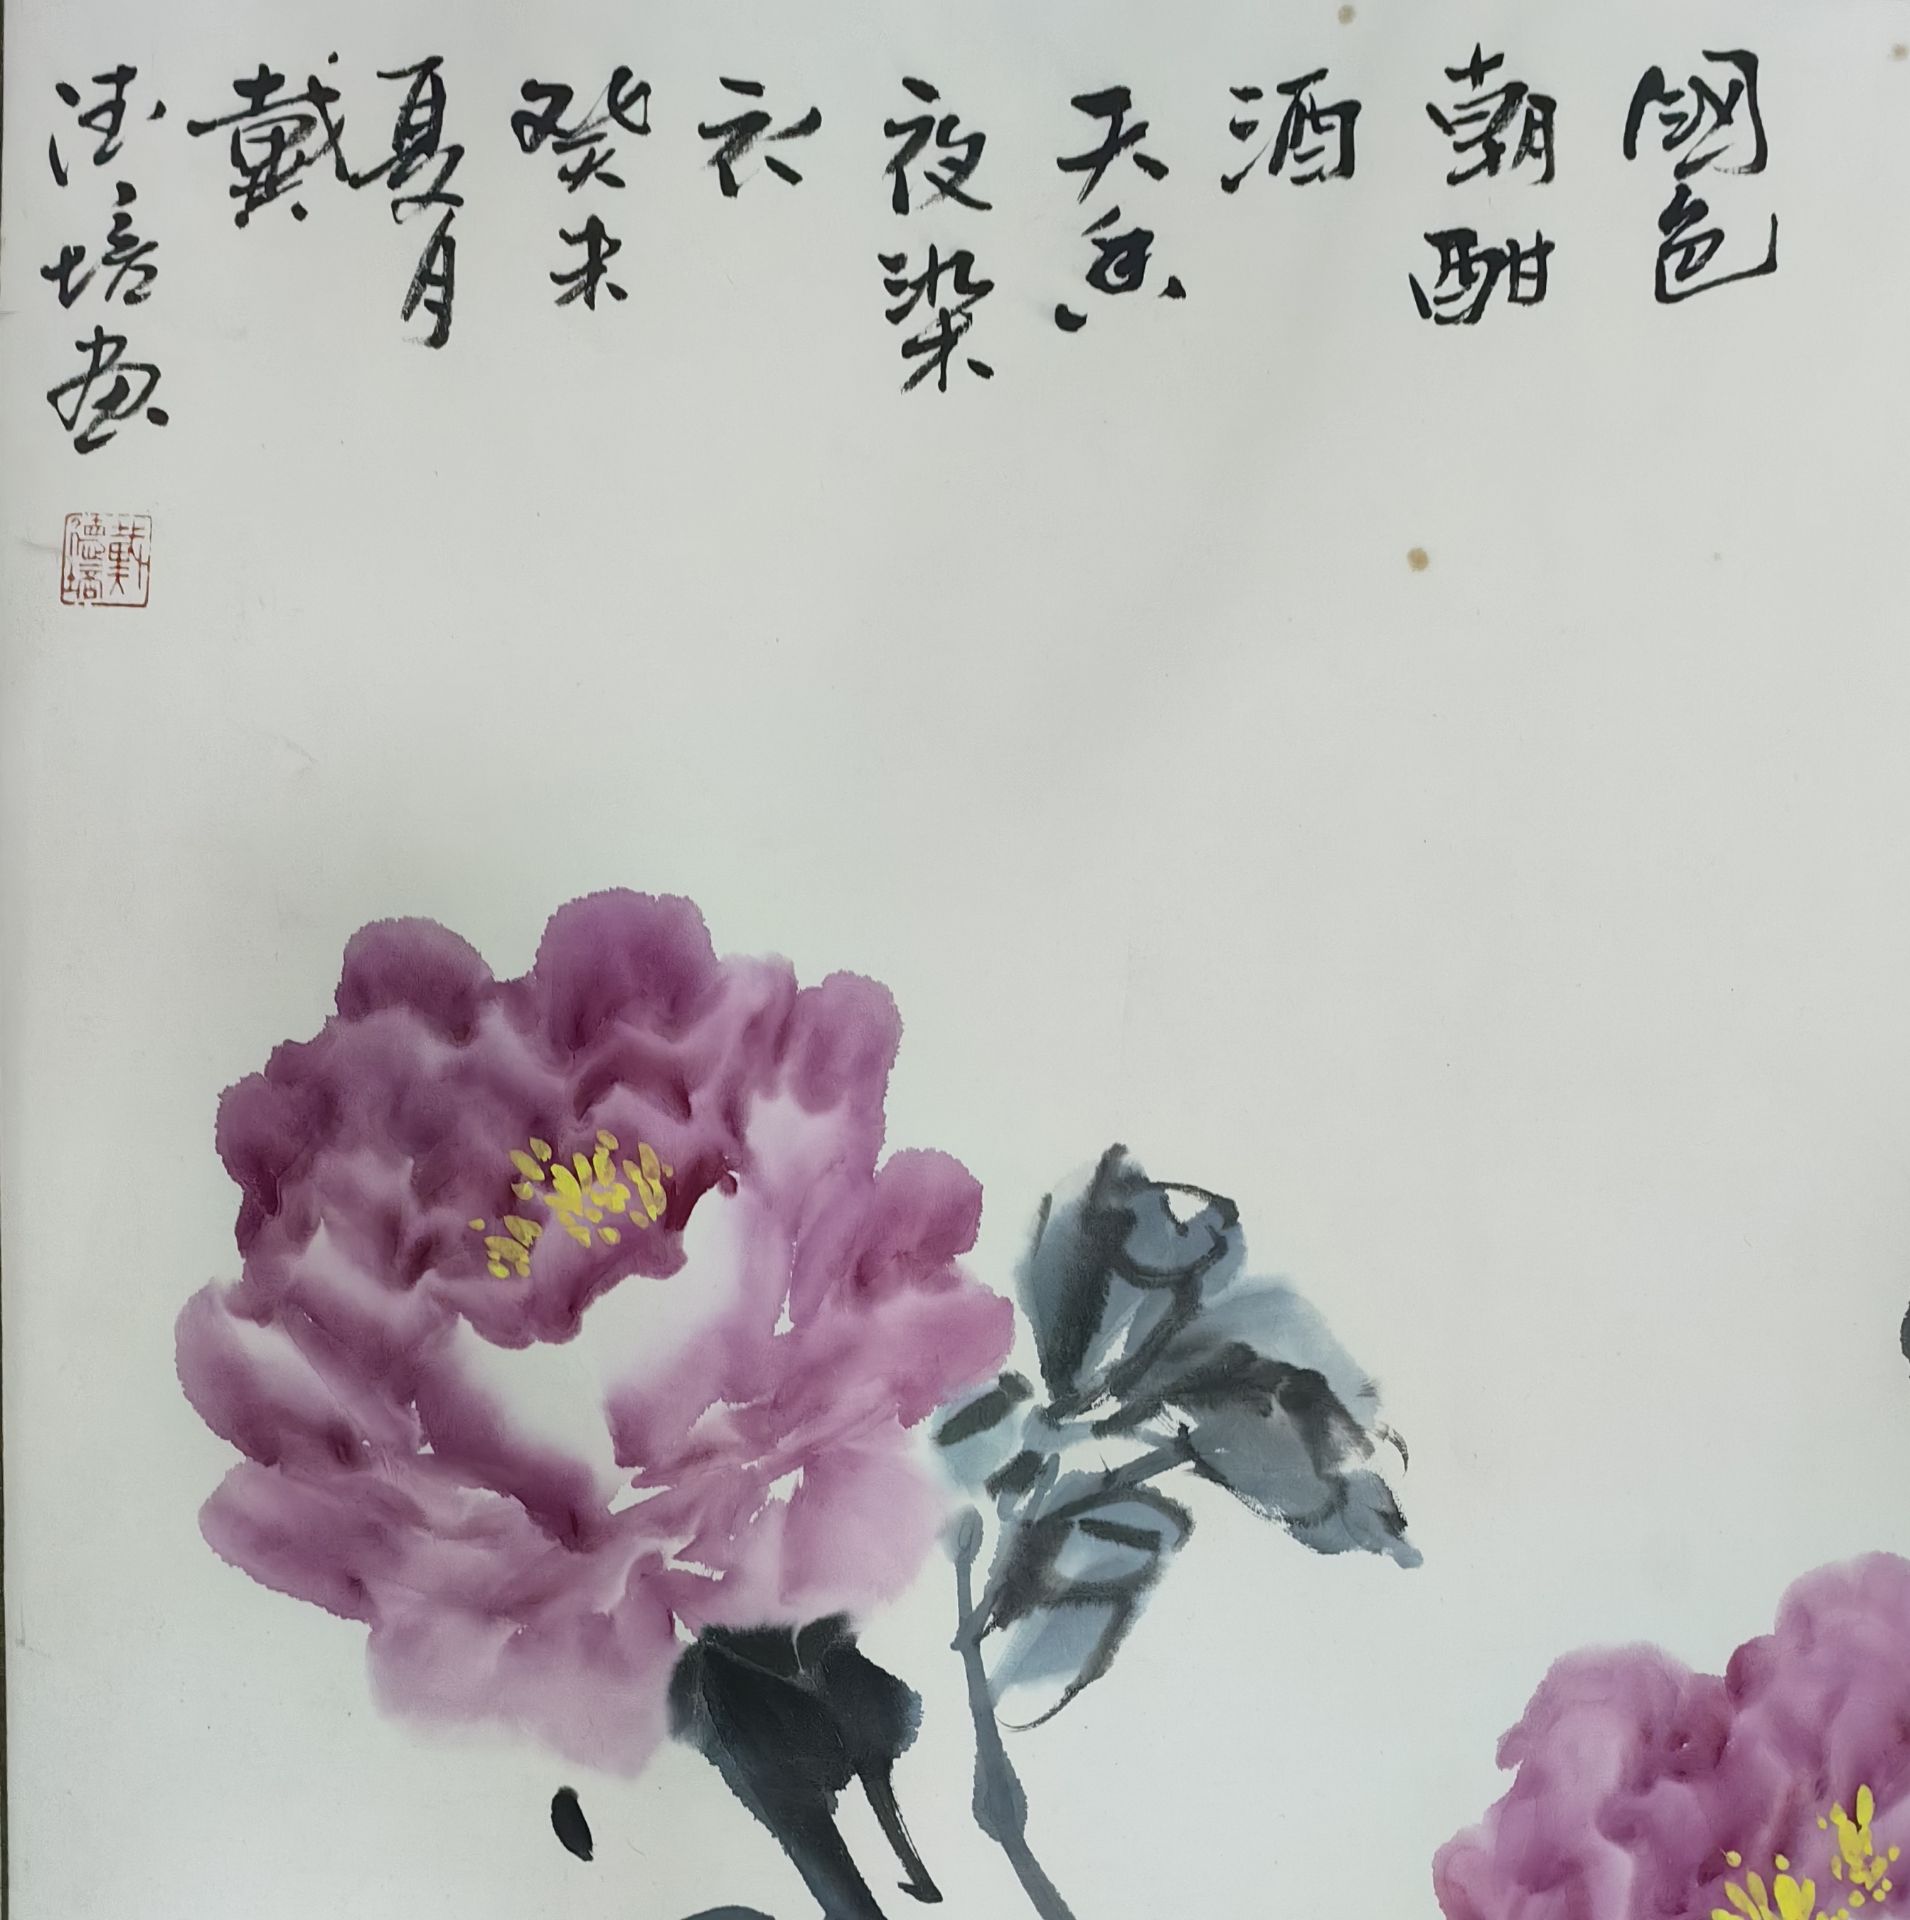 國色
朝酣
酒
天香
夜染
衣
癸未
夏月
戴
德培画
戴德培